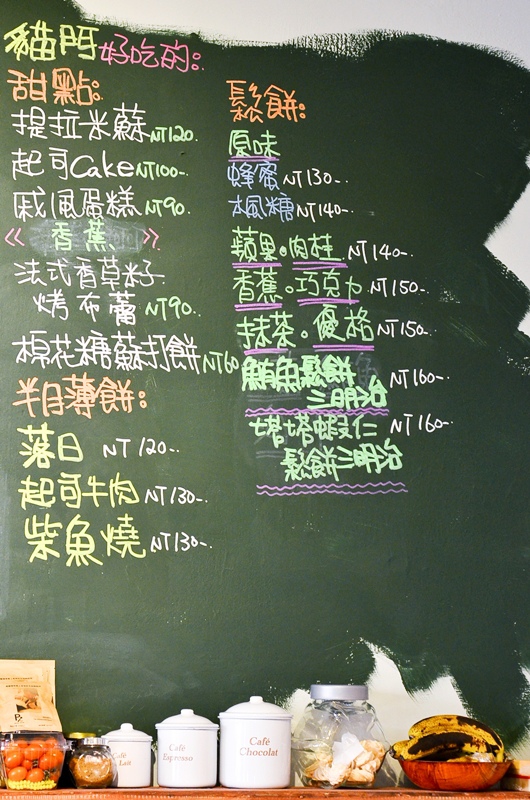 貓門好吃的:
甜點:
提拉米蘇NT120.
起司CakeNT100-.
戚風蛋糕 NT90.
《香蕉》
法式香草籽
烤布蕾 NT90.
棉花糖蘇打餅NT60
半月薄餅:
落日 NT120-.
起司牛肉 NT130-.
柴魚燒 NT130-.
鬆餅:
原味
蜂蜜 NT130-.
楓糖 NT140-.
蘋果。肉桂 NT140-.
香蕉。巧克力 NT150-.
抹茶。優格 NT150-.
鮪魚鬆餅
三明治 NT160-.
塔塔蝦仁 NT160-.
鬆餅三明治
Café
Lait
Café
Espresso
Café
Chocolat